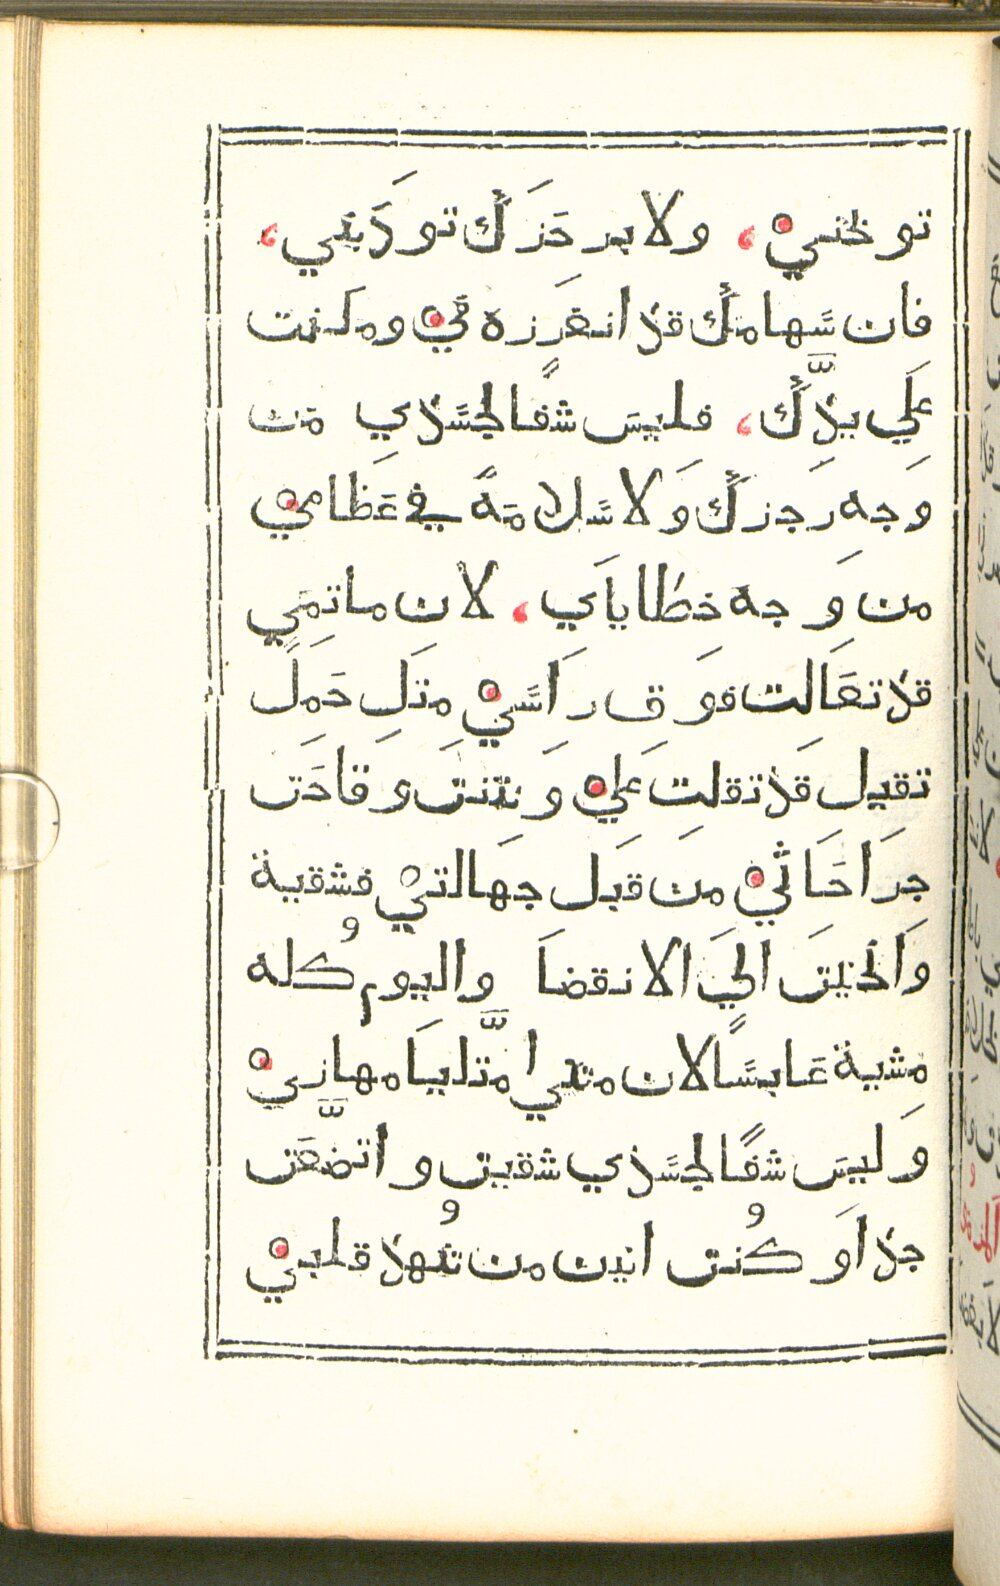 توبخني، ولا برجزك تودبني،
فان سهامك قد انغرزه في ومكنت
علي يدك، فليس شفا لجسدي من
وجه رجزك ولا سلامة في عظامي
من وجه خطاياي، لان ماتمي
قد تعالت فوق راسي متل حمل
تقيل قد تقلت علي ونتنت وقاحت
جراحاثي من قبل جهالتي فشقية
وانحنيت الي الانقضا واليوم كله
مشية عابسا لان متني امتليا مهازي
وليس شفا لجسدي شقيت واتضعت
جدا وكنت انين من تنهد قلبي